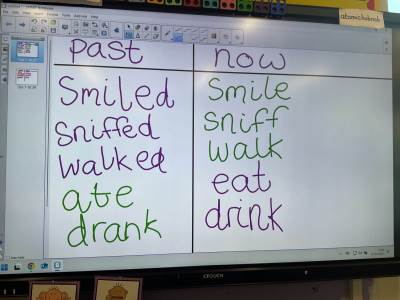 past now
Smiled Smile
Sniffed Sniff
walked walk
ate eat
drank drink
CTOUCH